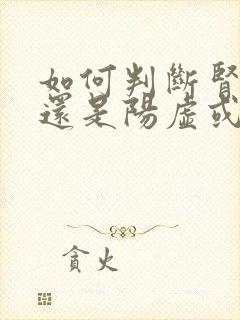 如何判斷腎
還是陽虛或
貪火